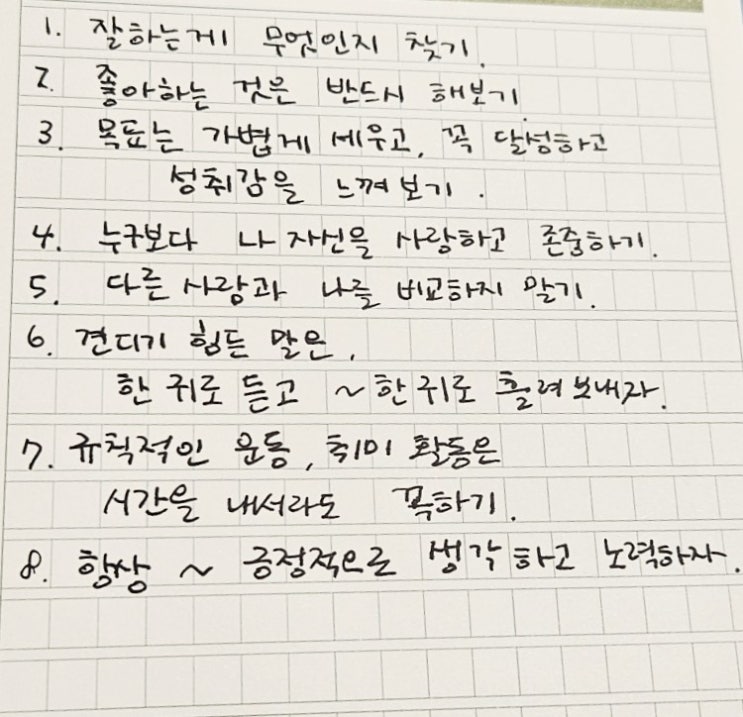 1. 잘하는게 무엇인지 찾기.
2. 좋아하는 것은 반드시 해보기.
3. 목표는 가볍게 세우고, 꼭 달성하고
성취감을 느껴 보기.
4. 누구보다 나 자신을 사랑하고 존중하기.
5. 다른 사람과 나를 비교하지 말기.
6. 견디기 힘든 말은,
한 귀로 듣고 ~ 한 귀로 흘려 보내자.
7. 규칙적인 운동, 취미 활동은
시간을 내서라도 꼭하기.
8. 항상 ~ 긍정적으로 생각하고 노력하자.